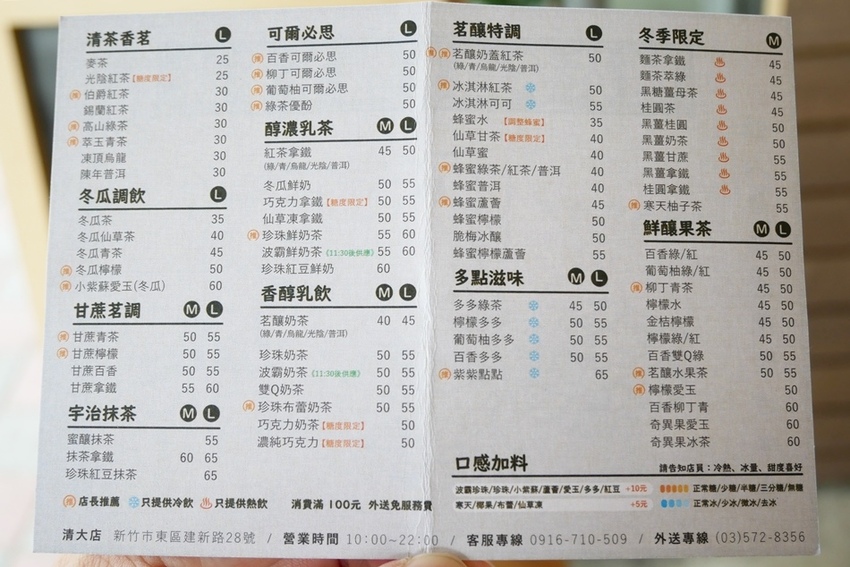 清茶香茗 L
麥茶 25
光陰紅茶【糖度限定】 25
推 伯爵紅茶 30
錫蘭紅茶 30
推 高山綠茶 30
推 萃玉青茶 30
凍頂烏龍 30
陳年普洱 30
冬瓜調飲 L
冬瓜茶 35
冬瓜仙草茶 40
冬瓜青茶 45
推 冬瓜檸檬 50
推 小紫蘇愛玉(冬瓜) 60
甘蔗茗調 M L
推 甘蔗青茶 50 55
推 甘蔗檸檬 50 55
甘蔗百香 50 55
甘蔗拿鐵 55 60
宇治抹茶 M L
蜜釀抹茶 55
抹茶拿鐵 60 65
珍珠紅豆抹茶 65
可爾必思 L
推 百香可爾必思 50
推 柳丁可爾必思 50
推 葡萄柚可爾必思 50
推 綠茶優酚 50
醇濃乳茶 M L
紅茶拿鐵 45 50
(綠/青/烏龍/光陰/普洱)
冬瓜鮮奶 50 55
巧克力拿鐵【糖度限定】 50 55
仙草凍拿鐵 50 55
推 珍珠鮮奶茶 55 60
波霸鮮奶茶(11:30後供應) 55 60
珍珠紅豆鮮奶 60
香醇乳飲 M L
茗釀奶茶 40 45
(綠/青/烏龍/光陰/普洱)
珍珠奶茶 50 55
波霸奶茶(11:30後供應) 50 55
雙Q奶茶 50 55
推 珍珠布蕾奶茶 50 55
巧克力奶茶【糖度限定】 50
濃純巧克力【糖度限定】 50
推 店長推薦 只提供冷飲 只提供熱飲 消費滿 100元 外送免服務費
茗釀特調 L
推 推 茗釀奶蓋紅茶 50
(綠/青/烏龍/光陰/普洱)
推 冰淇淋紅茶 50
冰淇淋可可 55
蜂蜜水 【調整蜂蜜】 35
仙草甘茶【糖度限定】 40
仙草蜜 40
推 蜂蜜綠茶/紅茶/普洱 40
蜂蜜普洱 40
推 蜂蜜蘆薈 45
蜂蜜檸檬 50
脆梅冰釀 50
蜂蜜檸檬蘆薈 55
多點滋味 M L
多多綠茶 45 50
檸檬多多 50 55
葡萄柚多多 50 55
百香多多 50 55
推 紫紫點點 65
冬季限定 M
麵茶拿鐵 45
麵茶萃綠 45
黑糖薑母茶 45
桂圓茶 45
黑薑桂圓 50
黑薑奶茶 50
黑薑甘蔗 55
黑薑拿鐵 55
桂圓拿鐵 55
推 寒天柚子茶 55
鮮釀果茶 M L
百香綠/紅 45 50
葡萄柚綠/紅 45 50
推 柳丁青茶 45 50
檸檬水 45 50
金桔檸檬 45 50
檸檬綠/紅 45 50
百香雙Q綠 50 55
推 茗釀水果茶 50 55
推 檸檬愛玉 50
百香柳丁青 60
奇異果愛玉 60
奇異果冰茶 60
口感加料 請告知店員：冷熱、冰量、甜度喜好
波霸珍珠/珍珠/小紫蘇/蘆薈/愛玉/多多/紅豆 +10元 正常糖/少糖/半糖/三分糖/無糖
寒天/椰果/布蕾/仙草凍 +5元 正常冰/少冰/微冰/去冰
清大店 新竹市東區建新路28號 / 營業時間 10:00~22:00 / 客服專線 0916-710-509 / 外送專線 (03)572-8356